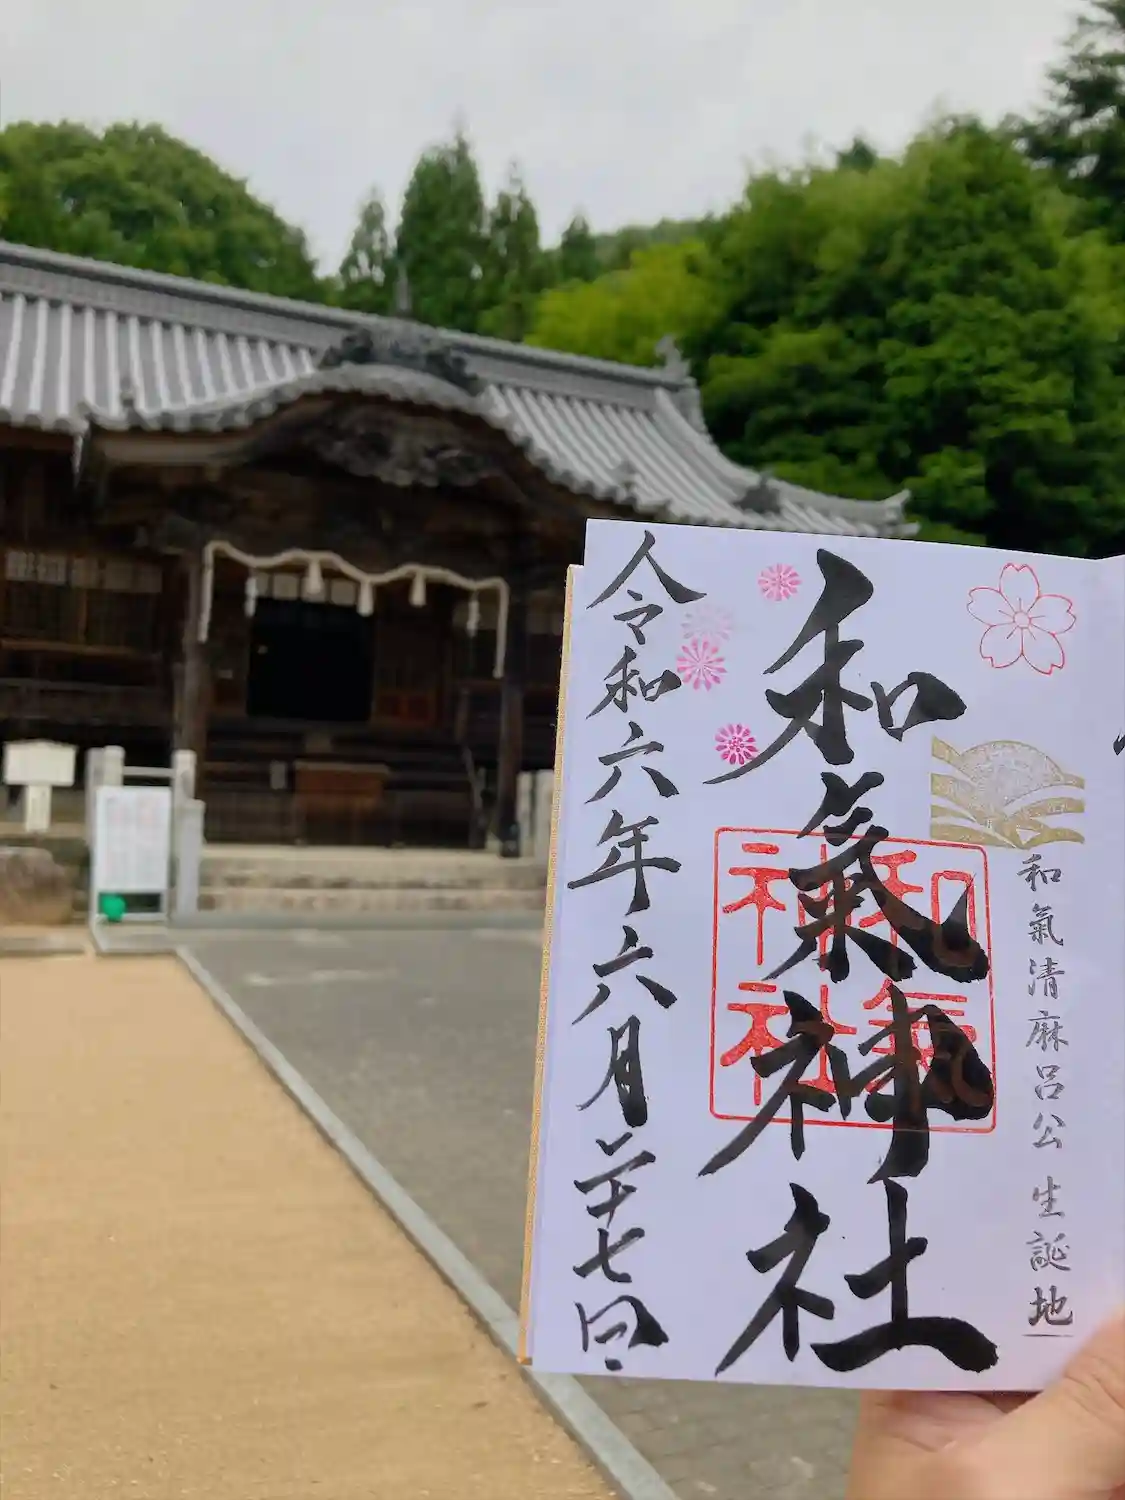 和氣清麻呂公 生誕地
和氣神社
和氣
神社
令和六年六月廿七日